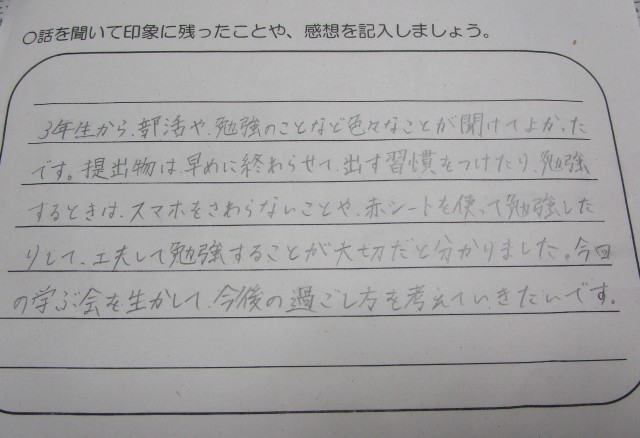 ○話を聞いて印象に残ったことや、感想を記入しましょう。
3年生から、部活や、勉強のことなど色々なことが聞けてよかった
です。提出物は、早めに終わらせて、出す習慣をつけたり、勉強
するときは、スマホをさわらないことや、赤シートを使って勉強した
りして、工夫して勉強することが大切だと分かりました。今回
の学ぶ会を生かして、今後の過ごし方を考えていきたいです。